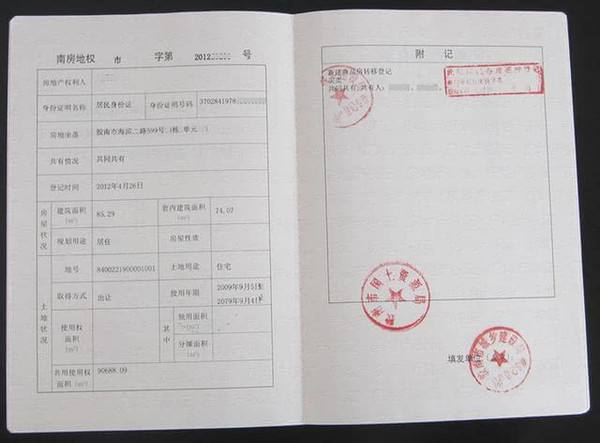 南房地权 市 字第 2012 号
房地产权利人
身份证明名称 居民身份证 身份证明号码 3702841978
房地坐落 胶南市海滨二路599号 栋 单元
共有情况 共同共有
登记时间 2012年4月26日
房屋状况 建筑面积(m²) 85.29 套内建筑面积(m²) 74.07
规划用途 居住 房屋性质
土地状况 地号 8400221900001001 土地用途 住宅
取得方式 出让 使用年期 2009年9月5
2079年9月4
使用权面积(m²) 其中 使用面积(m²)
分摊面积(m²)
共用使用权面积(m²) 90688.09
附 记
新建商品房转移登记
买卖
共同共有;共有人:
胶南市国土资源局
胶南市城乡建设局
填发单位